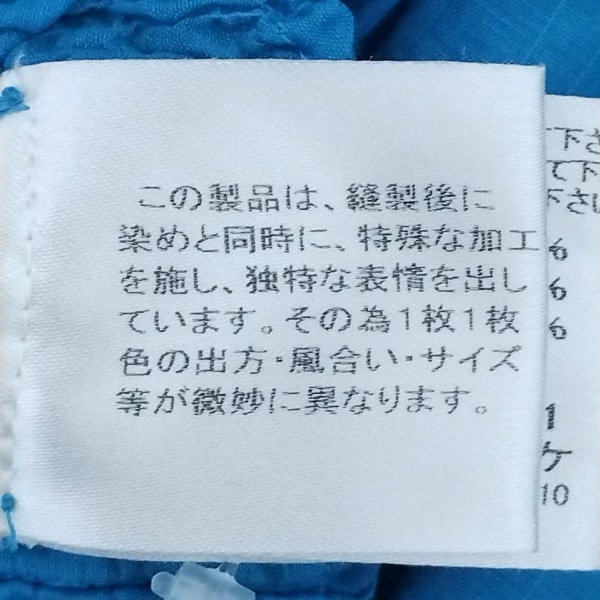 この製品は、縫製後に
染めと同時に、特殊な加工
を施し、独特な表情を出し
ています。その為1枚1枚
色の出方・風合い・サイズ
等が微妙に異なります。
下さ
て下
下さい
6
6
6
1
ケ
10